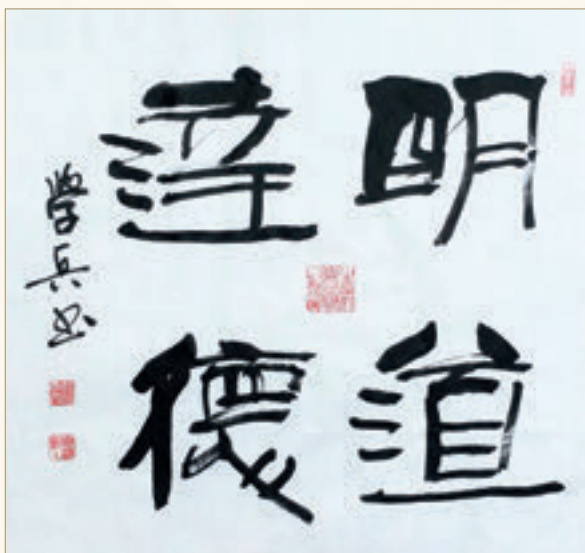 明道
達德
學兵书